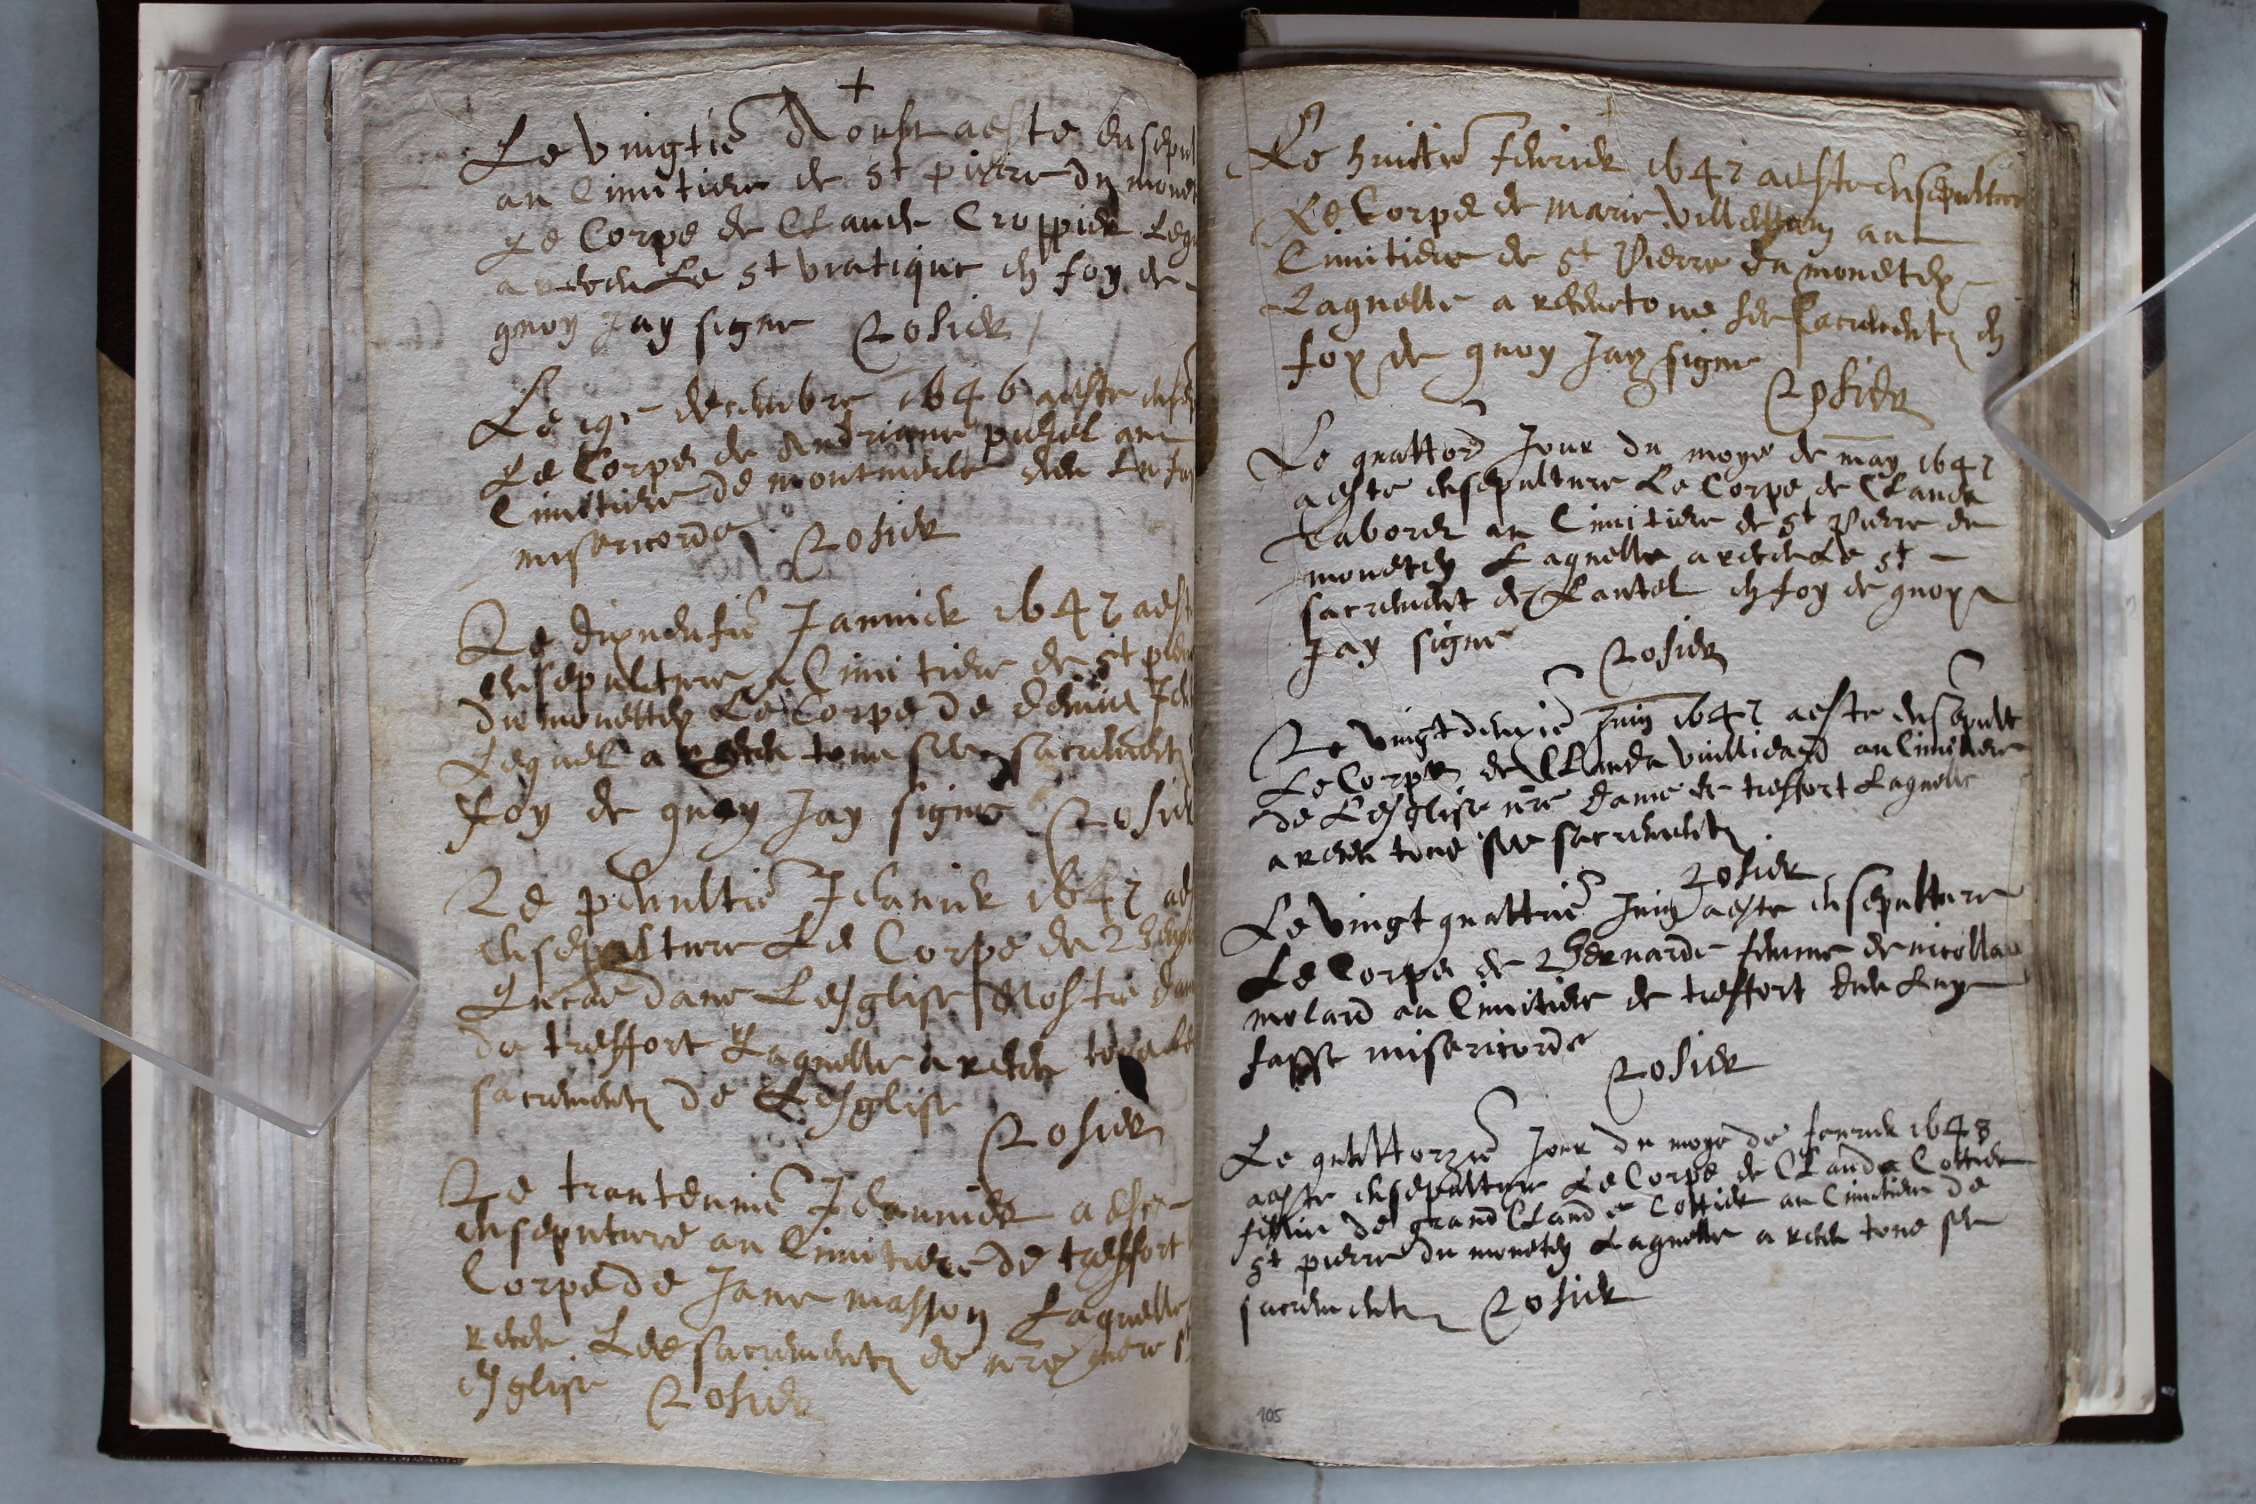 +
Le vingtie d'Aoust a este ensepul
au Cimitiere de St pierre du monet
Le Corps de Claude Croppier Leq
a receu Le st viatique en foy de
quoy Jay signe Rosier
Le 19e decembre 1646 a este ensep
Le Corps de Andriane au
Cimittiere de montmerle dieu Luy fa
misericorde Rosier
Le dixneufie Janvier 1647 a est
ensepulture a Cimitiere de st pier
du monettey Le Corps de
Lequel a receu tous ses sacrements
foy de quoy Jay signe Rosier
Le penultie Jeanvier 1647 a es
ensepulture Le Corps de
dans Lesglise Nostre dam
de treffort Laquelle a receu tous
sacrements de Lesglise
Rosier
Le trantunie Jeanvier a este
ensepulture au Cimitiere de treffort
Corps de Jane masson Laquelle
receu Les sacrements de nre mere s
esglise Rosier
Le huitie febvrier 1647 a este ensepulture
Le Corps de Marie au
Cimitiere de St Pierre du monetey
Laquelle a receu tous ses sacrements en
foy de quoy Jay signe
Rosier
Le quattord Jour du moys de may 1647
a este ensepulture Le Corps de Claude
au Cimitiere de St Pierre de
monetey Laquelle a receu Le St
sacrement de Lautel en foy de quoy
Jay signe Rosier
Le vingt deuxie Juin 1647 a este ensepult
Le Corps de Clauda vuilliard au Cimittiere
de Lesglise nre dame de treffort Laquelle
a receu tous ses sacrements
Rosier
Le vingt quattrie Juin a este ensepulture
Le Corps de Bernarde femme de nicollas
molard au Cimitiere de treffort dieu Luy
fasse misericorde
Rosier
Le quattorzie Jour du moys de fevrier 1648
a este ensepulture Le Corps de Clauda Cottier
fillie de grand Claude Cottier au Cimitiere de
St pierre du monetey Laquelle a receu tous ses
sacrements Rosier
105